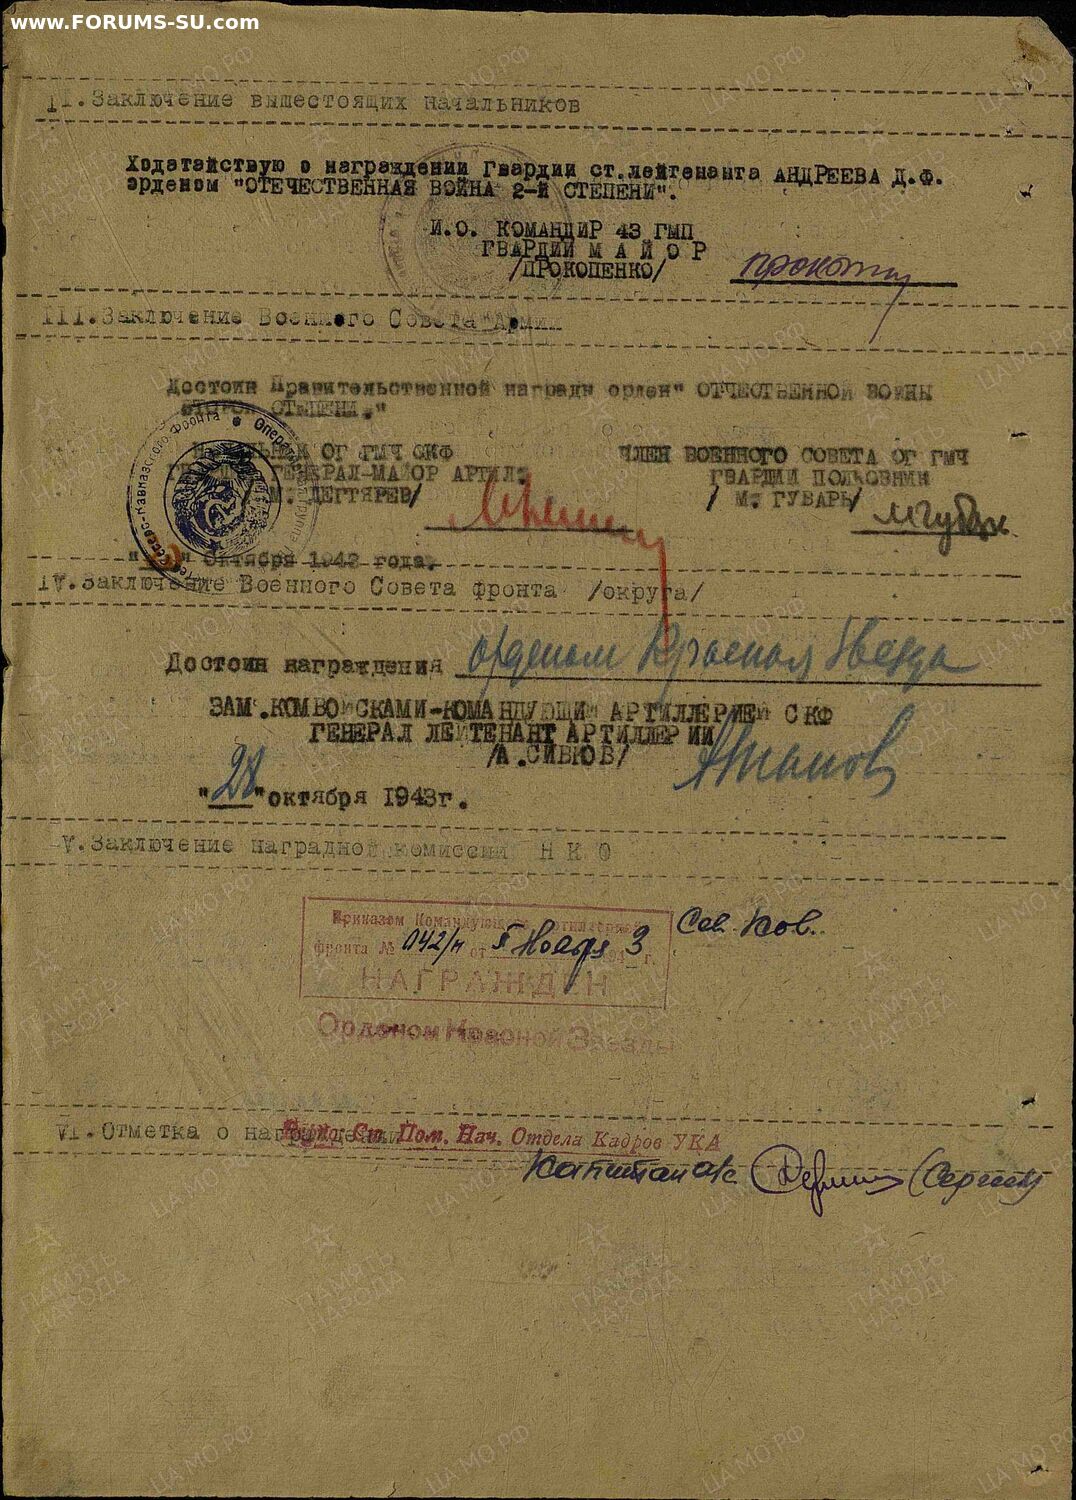 www.FORUMS-SU.com
II.Заключение вышестоящих начальников
Ходатайствую о награждении Гвардии ст.лейтенанта АНДРЕЕВА Д.Ф.
орденом "ОТЕЧЕСТВЕННАЯ ВОЙНА 2-Й СТЕПЕНИ".
И.О. КОМАНДИР 43 ГМП
ГВАРДИИ М А Й О Р
/ПРОКОПЕНКО/
III.Заключение Военного Совета Армии
Достоин Правительственной награды орден" ОТЧЕСТВЕННОЙ ВОЙНЫ
ВТОРОЙ СТЕПЕНИ."
ОГ ГМЧ СКФ ЧЛЕН ВОЕННОГО СОВЕТА ОГ ГМЧ
ГЕНЕРАЛ-МАЙОР АРТИЛ. ГВАРДИИ ПОЛКОВНИК
М. ДЕГТЯРЕВ/ / М. ГУБАРЬ/
Северо-Кавказского Фронта
октября 1943 года.
IV.Заключение Военного Совета фронта /округа/
Достоин награждения орденом Красная Звезда
ЗАМ.КОМВОЙСКАМИ-КОМАНДУЮЩИЙ АРТИЛЛЕРИЕЙ СКФ
ГЕНЕРАЛ ЛЕЙТЕНАНТ АРТИЛЛЕРИИ
/А.СИВКОВ/
"28" октября 1943г.
V.Заключение наградной комиссии Н К О
Приказом Командующего Артиллерией Сев. Кав.
фронта № 042/н от 5 Ноября 1943 г.
НАГРАЖДЕН
Орденом Красной Звезды
VI.Отметка о награждении
Ст. Пом. Нач. Отдела Кадров УКА
Капитан а/с
ПАМЯТЬ НАРОДА
ЦА МО РФ